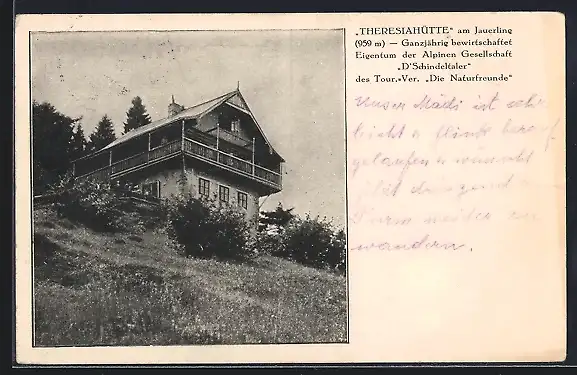 „THERESIAHÜTTE“ am Jauerling
(959 m) — Ganzjährig bewirtschaftet
Eigentum der Alpinen Gesellschaft
„D'Schindeltaler“
des Tour.-Ver. „Die Naturfreunde“
Unser Mädi ist sehr
leicht u flink berauf
gelaufen u wünscht
wandern.